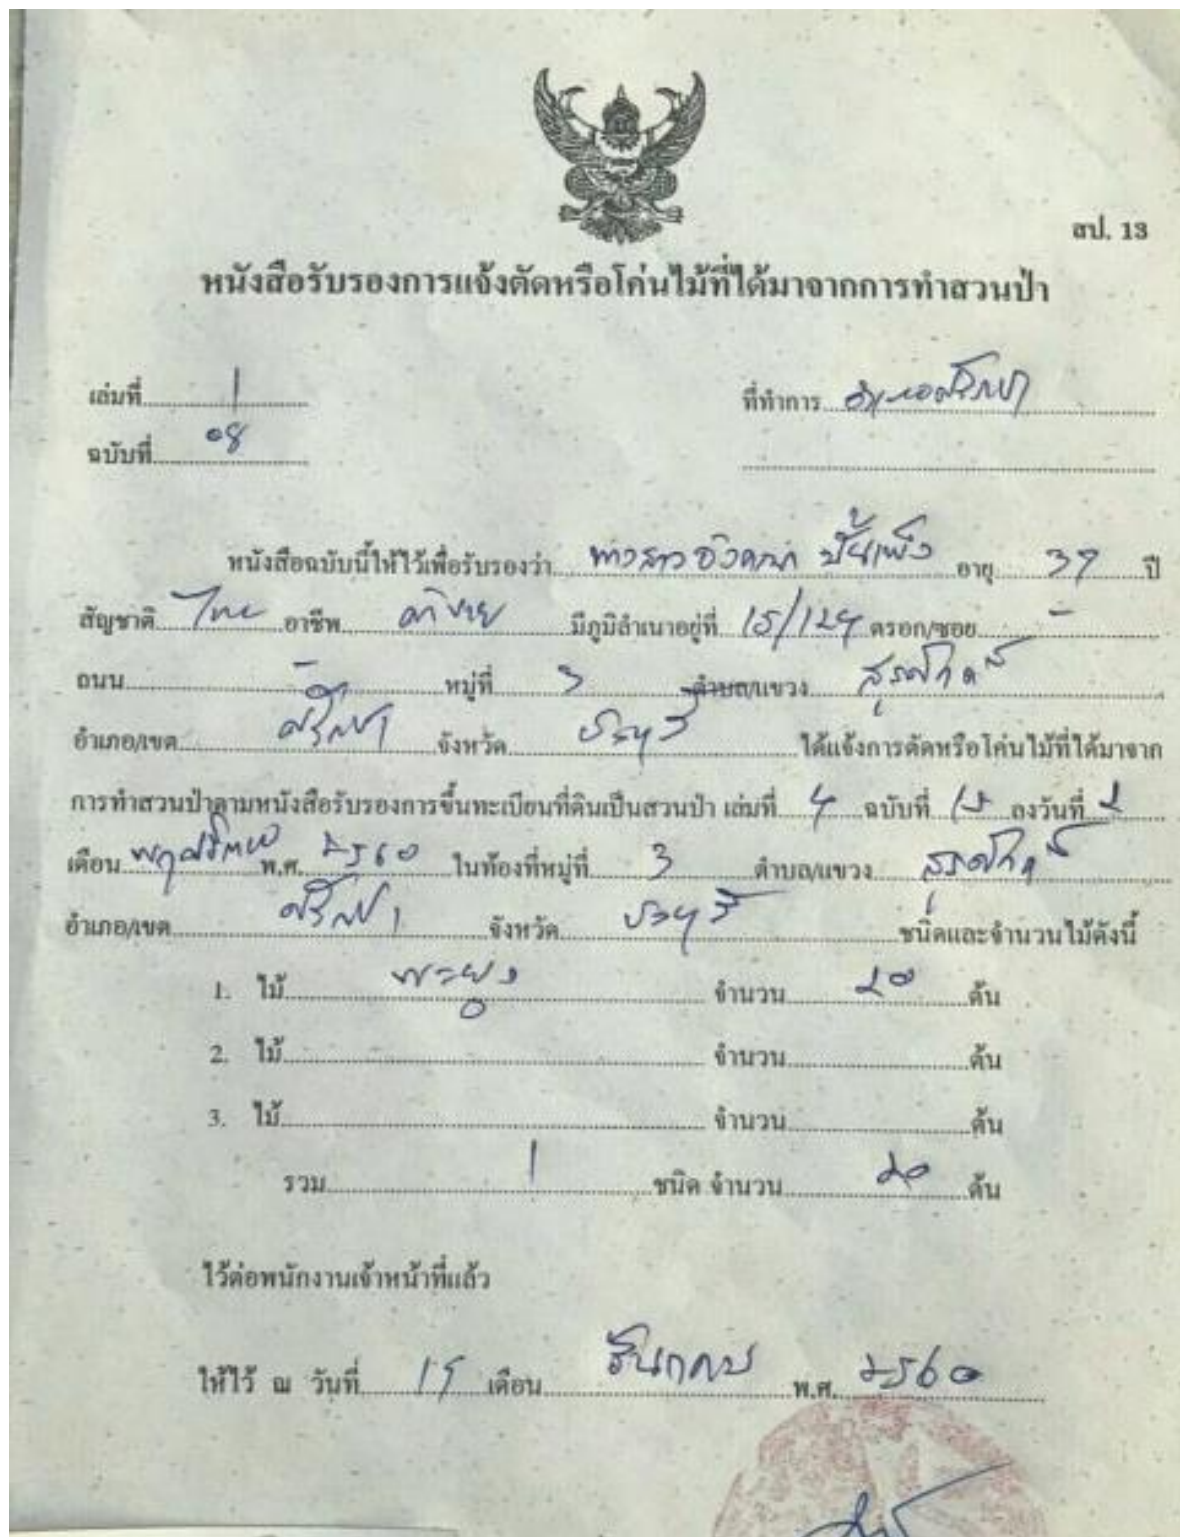 สป. 13
หนังสือรับรองการแจ้งตัดหรือโค่นไม้ที่ได้มาจากการทำสวนป่า
เล่มที่ 1 ที่ทำการ อำเภอศรีราชา
ฉบับที่ 08
หนังสือฉบับนี้ให้ไว้เพื่อรับรองว่า นางสาว อังคณา ปั้นเพ็ง อายุ 37 ปี
สัญชาติ ไทย อาชีพ ค้าขาย มีภูมิลำเนาอยู่ที่ 15/124 ตรอก/ซอย -
ถนน - หมู่ที่ 3 ตำบล/แขวง สุรศักดิ์
อำเภอ/เขต ศรีราชา จังหวัด ชลบุรี ได้แจ้งการตัดหรือโค่นไม้ที่ได้มาจาก
การทำสวนป่าตามหนังสือรับรองการขึ้นทะเบียนที่ดินเป็นสวนป่า เล่มที่ 4 ฉบับที่ ลงวันที่ 2
เดือน พฤศจิกายน พ.ศ. 2560 ในท้องที่หมู่ที่ 3 ตำบล/แขวง สุรศักดิ์
อำเภอ/เขต ศรีราชา จังหวัด ชลบุรี ชนิดและจำนวนไม้ดังนี้
1. ไม้ พะยูง จำนวน 20 ต้น
2. ไม้ จำนวน ต้น
3. ไม้ จำนวน ต้น
รวม 1 ชนิด จำนวน 20 ต้น
ไว้ต่อพนักงานเจ้าหน้าที่แล้ว
ให้ไว้ ณ วันที่ 15 เดือน ธันวาคม พ.ศ. 2560